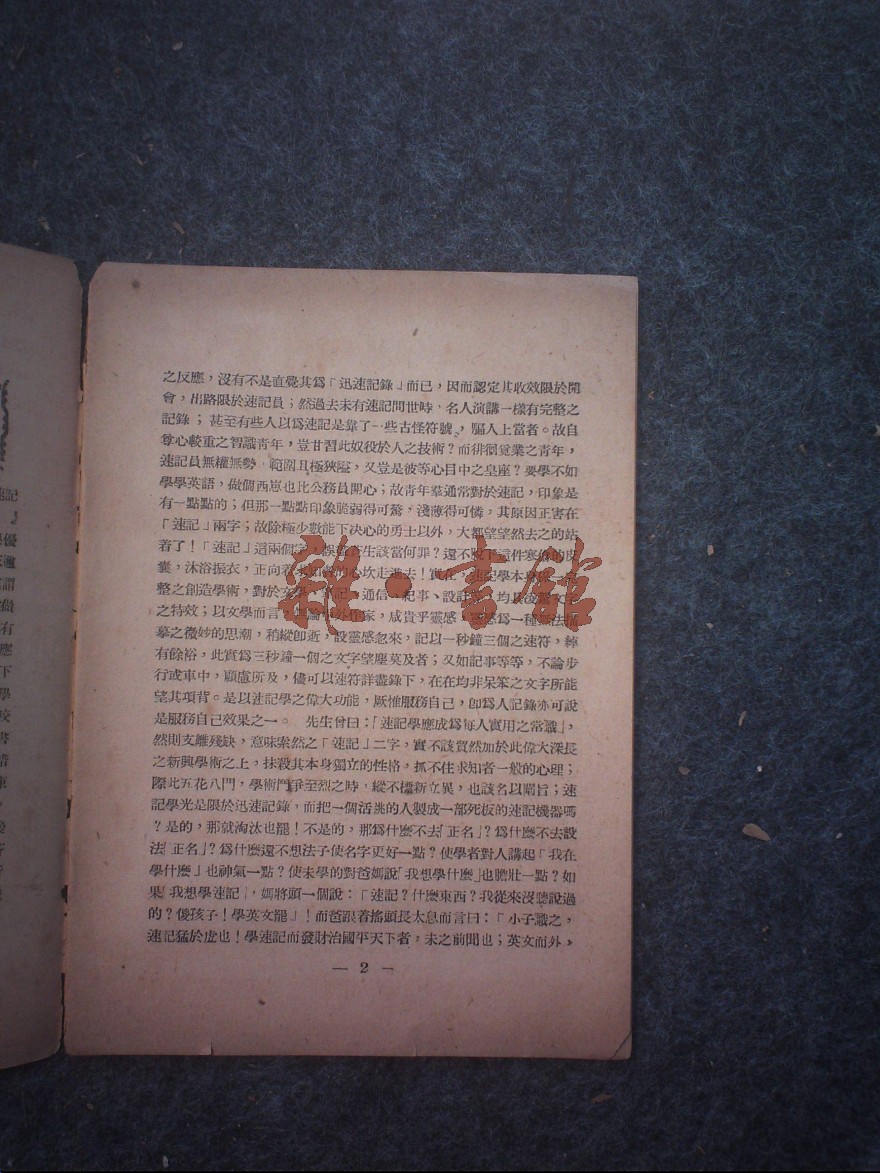 之反應，沒有不是直覺其爲「迅速記錄」而已，因而認定其收效限於開
會，出路限於速記員；然過去未有速記問世時，名人演講一樣有完整之
記錄；甚至有些人以爲速記是靠了一些古怪符號，騙人上當者。故自
尊心較重之智識靑年，豈甘習此奴役於人之技術？而徘徊覓業之靑年，
速記員無權無勢，範圍且極狹隘，又豈是彼等心目中之皇座？要學不如
學學英語，做個西崽也比公務員開心；故靑年羣通常對於速記，印象是
有一點點的；但那一點點印象脆弱得可驚，淺薄得可憐，其原因正害在
「速記」兩字；故除極少數能下决心的勇士以外，大都望望然去之的站
着了！「速記」這兩個字，誤盡蒼生該當何罪？還不脫下這件寒傖的皮
囊，沐浴振衣，正向着求知者的心坎走進去！實在，速記學本身
整之創造學術，對於文學、通信、記事、設計
之特效；以文學而言，無論中外作家，咸貴乎靈感，靈感爲一種無法描
摹之微妙的思潮，稍縱卽逝，設靈感忽來，記以一秒鐘三個之速符，綽
有餘裕，此實爲三秒鐘一個之文字望塵莫及者；又如記事等等，不論步
行或車中，顧慮所及，儘可以速符詳盡錄下，在在均非呆笨之文字所能
望其項背。是以速記學之偉大功能，厥惟服務自己，卽爲人記錄亦可說
是服務自己效果之一。　先生曾曰：「速記學應成爲每人實用之常識」，
然則支離殘缺，意味索然之「速記」二字，實不該貿然加於此偉大深長
之新興學術之上，抹殺其本身獨立的性格，抓不住求知者一般的心理；
際此五花八門，學術鬥爭至烈之時，縱不標新立異，也該名以闡旨；速
記學光是限於迅速記錄，而把一個活跳的人製成一部死板的速記機器嗎
？是的，那就淘汰也罷！不是的，那爲什麼不去「正名」？爲什麼不去設
法「正名」？爲什麼還不想法子使名字更好一點？使學者對人講起「我在
學什麼」也神氣一點？使未學的對爸媽說「我想學什麼」也膽壯一點？如
果「我想學速記」，媽將頭一個說：「速記？什麼東西？我從來沒聽說過
的？傻孩子！學英文罷」！而爸跟着搖頭長太息而言曰：「小子識之，
速記猛於虎也！學速記而發財治國平天下者，未之前聞也；英文而外，
— 2 —
雜·書館